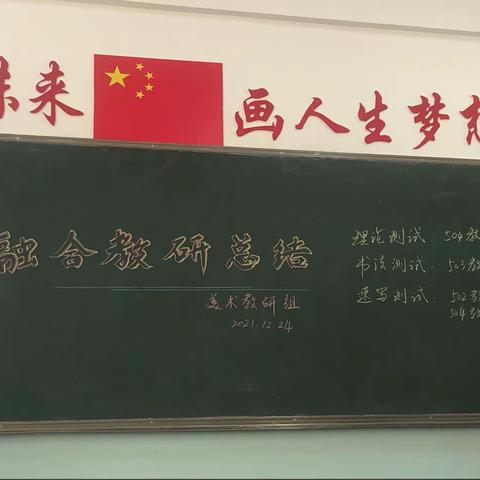 来 画人生梦
融合教研总结
美术教研组
2021.12.24
理论测试：504教
书法测试：503教
速写测试：502教
504教